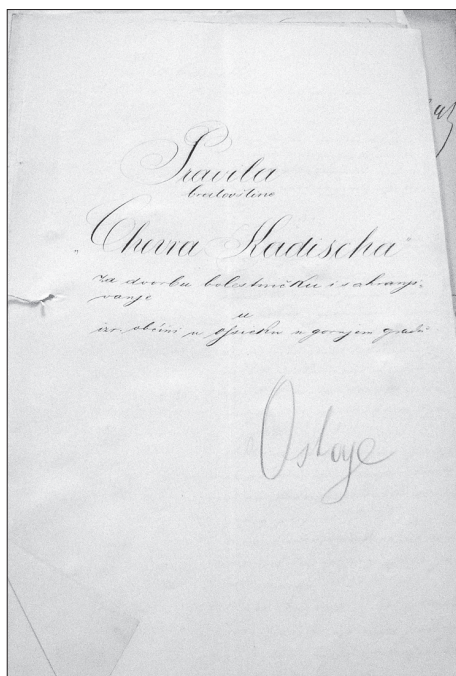 Pravila
bratovštine
„Chevra Kadischa"
za dvorbu bolestničku i sahranji-
vanje
u
izr. obćini u Osieku u gornjem gradu
Ostaje